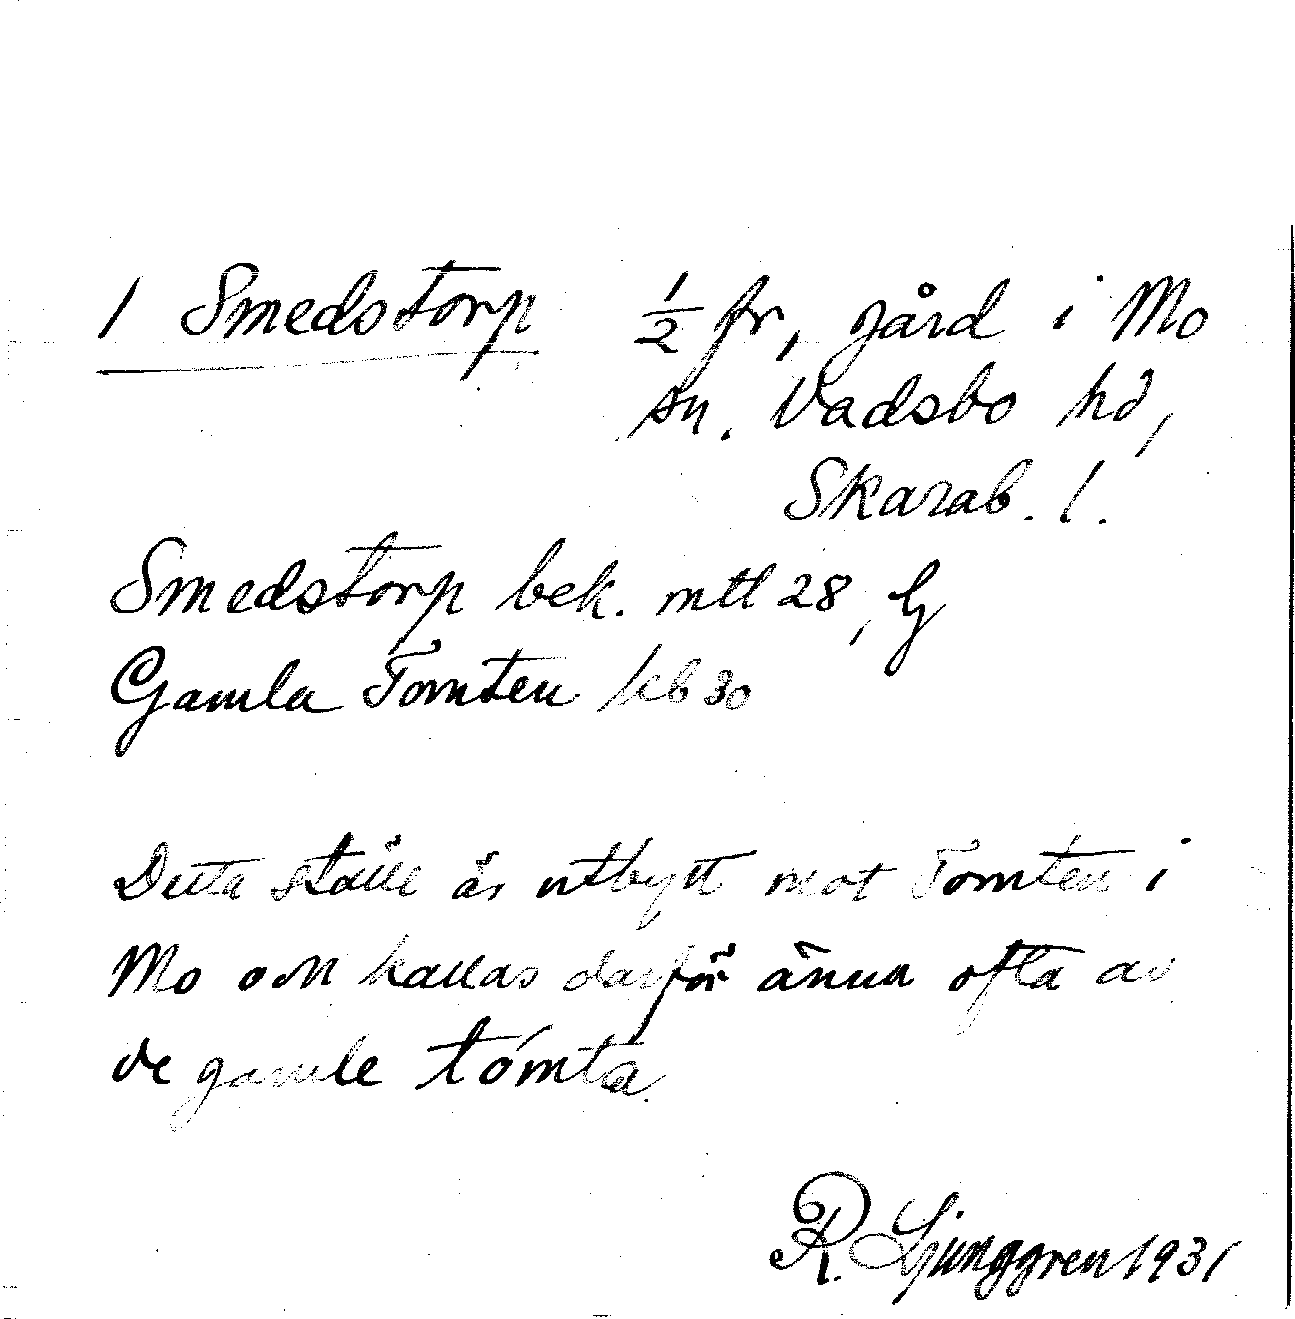 1 Smedstorp 1/2 fr, gård i Mo
sn. Vadsbo hd,
Skarab. l.
Smedstorp bek. mtl 28, Ly
Gamla Tomten kb 30
Detta ställe är utbytt mot Tomten i
Mo och kallas därför ännu ofta av
de gamle tómta
R. Ljunggren 1931